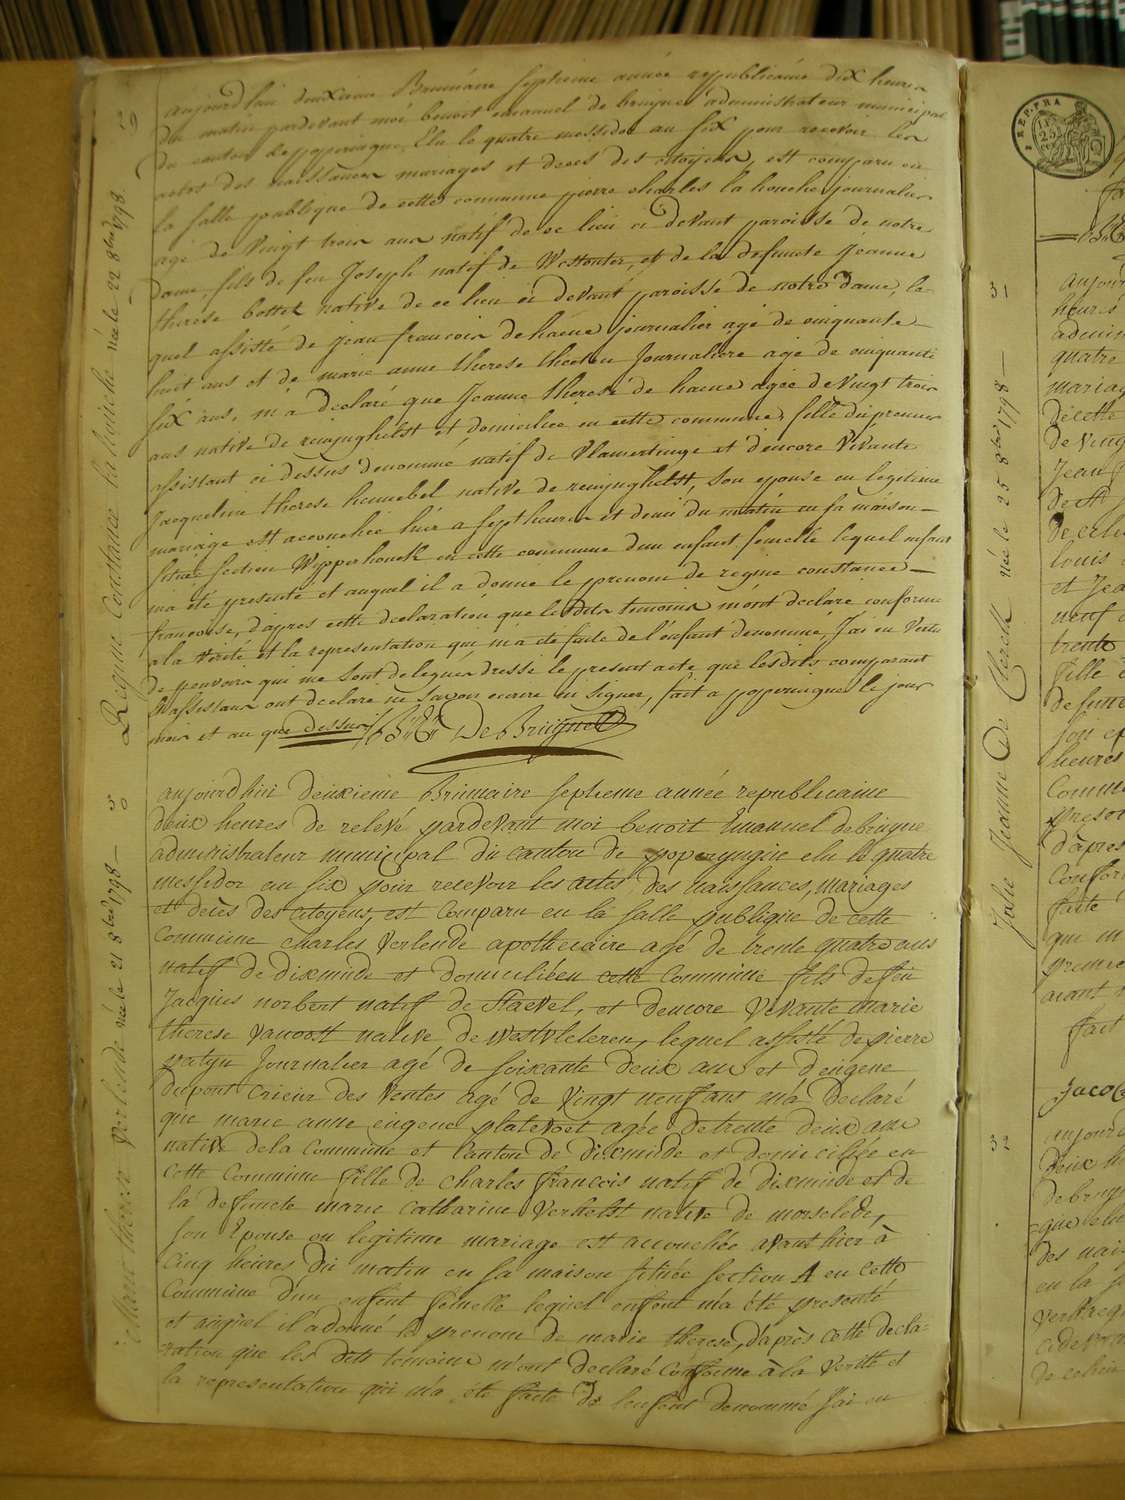 aujourd'hui deuxieme Brumaire septieme année republicaine dix heures
du matin pardevant moi benoit emanuel de bruijne administrateur municipal
du canton de poperingue, Elu le quatre messidor an six pour recevoir les
actes des naissances mariages et deces des citoyens, est comparu en
la salle publique de cette commune pierre charles la houche journalier
agé de vingt trois ans natif de ce lieu ci devant paroisse de notre
dame, fils de feu Joseph natif de Westouter, et de la defuncte Jeanne
therese bottel native de ce lieu ci devant paroisse de notre dame, le-
quel assisté de jean francois dehaene journalier agé de cinquante
huit ans et de marie anne therese Journaliere agé de cinquante
six ans, m'a declaré que Jeanne therese de haene agée de vingt trois
ans native de reninghelst et domiciliée en cette commune, fille du premier
assistant ci dessus denommé natif de Vlamertinge et d'encore vivante
Jacqueline therese hennebel native de reninghelst, son epouse en legitime
mariage est accouchée hier a sept heures et demi du matin en sa maison
située section Wipperhouck en cette commune d'un enfant femelle lequel enfant
m'a été presenté et auquel il a donné le prenom de regine constance
francoise, d'apres cette declaration que lesdits temoins m'ont declaré conforme
a la verité et la representation qui m'a été faite de l'enfant denommé, J'ai en vertu
de pouvoirs qui me sont delegués dressé le present acte que lesdits comparant
et assistans ont declaré ne savoir ecrire ni signer, fait a poperingue le jour
mois et an que dessus B: E: De Bruijne
50
Regine Constance la houche née le 22 8bre 1798
aujourdhui deuxieme Brumaire septieme année republicaine
deux heures de relevé pardevant moi benoit Emanuel debruyne
administrateur municipal du canton de poperyngue elu le quatre
messidor an six pour recevoir les actes des naissances, mariages
et decès des citoyens, est comparu en la salle publique de cette
commune charles verlende apothicaire agé de trente quatre ans
natif de dixmude et domicilié en cette commune fils de feu
Jacques norbert natif de Stavel, et d'encore vivante marie
therese vanoost native de westvleteren, lequel assisté de pierre
Journalier agé de soixante deux ans et d'eugene
dupont crieur des ventes agé de vingt neuf ans m'a declaré
que marie anne eugene platevoet agée de trente deux ans
native de la commune et Canton de dixmude et domiciliée en
cette commune fille de charles francois natif de dixmude et de
la defuncte marie catharine verhelst native de morselede,
son Epouse en legitime mariage est accouchée avant hier à
cinq heures du matin en sa maison située section A en cette
commune d'un enfent femelle lequel enfent m'a été presenté
et auquel il a donné le prenom de marie therese, d'après cette decla-
ration que les dits temoins m'ont declaré conforme à la verité et
la representation qui m'a été faite de l'enfent denommé J'ai en
Marie therese verlende née le 21 8bre 1798
REP. FRA
25
51
Julie Jeanne De Clerck née le 25 8bre 1798
heures
admin
quatre
mariag
de cette
de ving
Jean
louis
et Jea
neuf
trente
fille
son ep
heures
Comm
presen
d'après
Confor
faite
qui m
premier
aiant
fait
Jacob
52
aujour
deux h
debruy
que elu
des nai
en la s